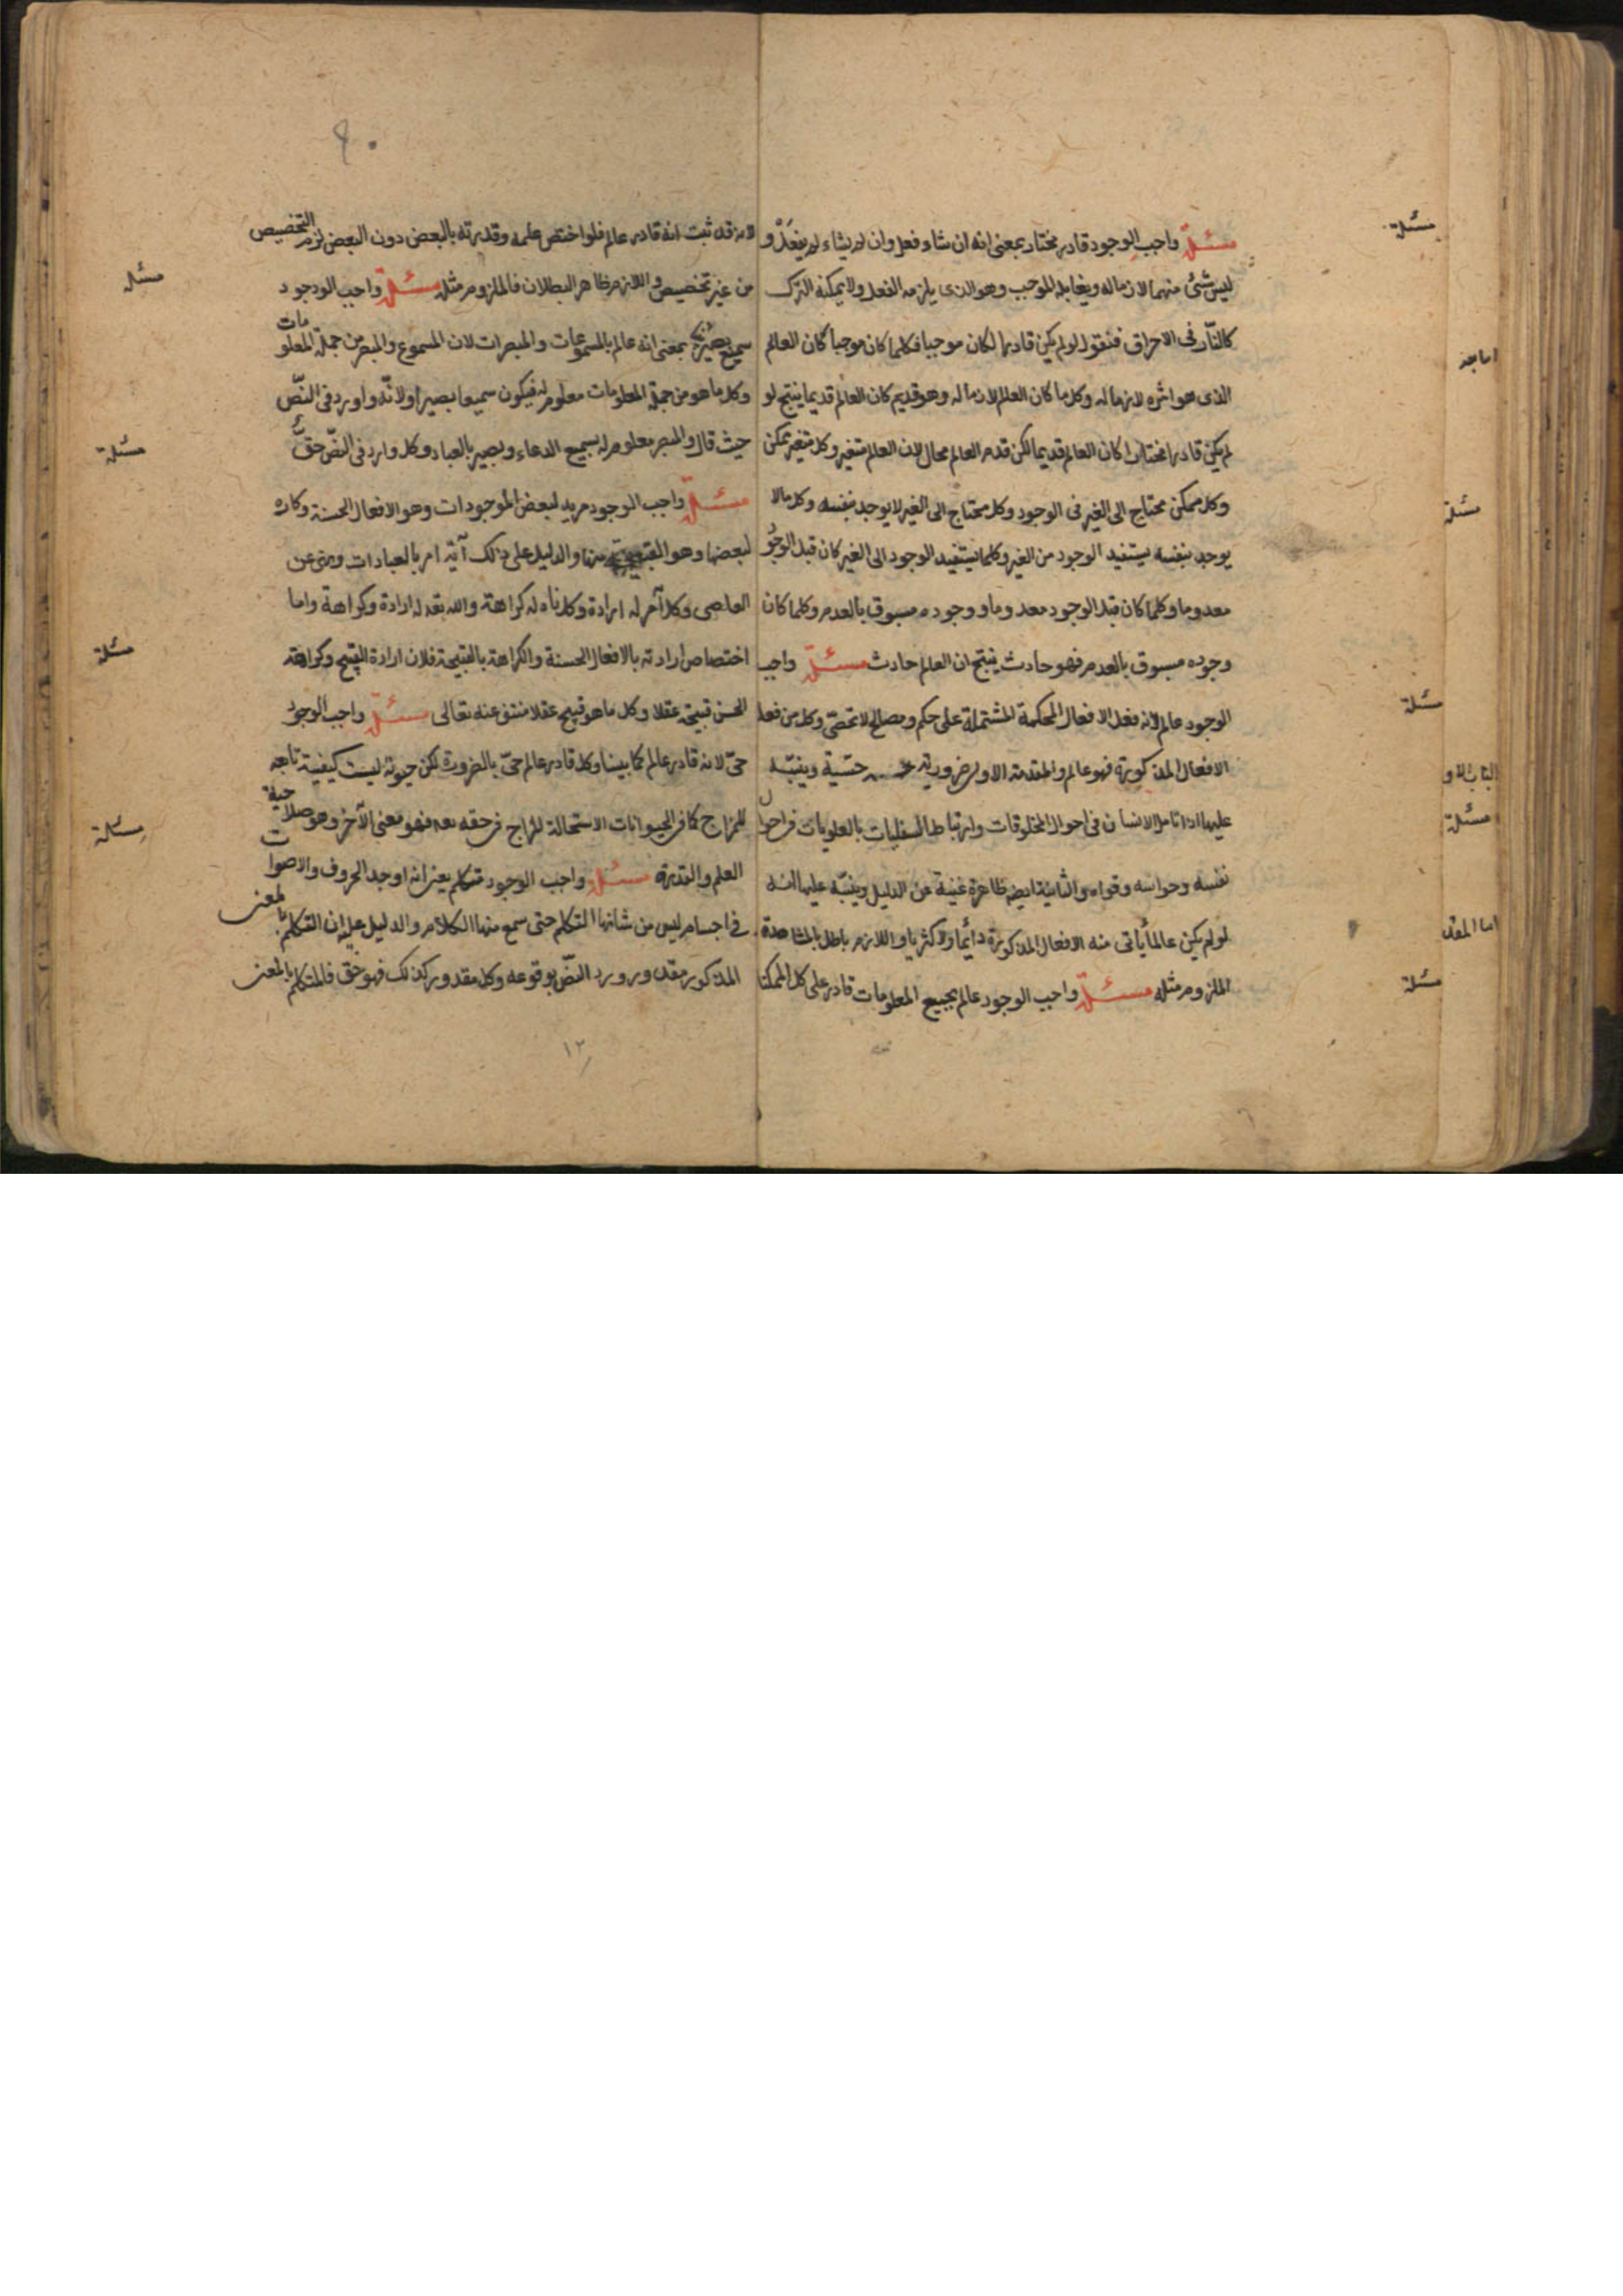 مسئلة واجب الوجود قادر مختار بمعنى انه ان شاء فعل وان لم يشاء لم يفعل و
ليس شئ منهما لازما له ويقابله الموجب وهو الذى يلزمه الفعل ولا يمكنه الترك
كالنّار فى الاحراق فنقول لو لم يكن قادرا لكان موجبا فكلما كان موجبا كان العالم
الذى هو اثره لازما له وكل ما كان العالم لازما له وهو قديم كان العالم قديما ينتج لو
لم يكن قادرا مختارا كان العالم قديما لكن قدم العالم محال لان العالم متغير وكل متغير ممكن
وكل ممكن محتاج الى الغير فى الوجود وكل محتاج الى الغير لا يوجد بنفسه وكل مالا
يوجد بنفسه يستفيد الوجود من الغير وكلما يستفيد الوجود الى الغير كان قبل الوجود
معدوما وكلما كان قبل الوجود معدوما ووجوده مسبوق بالعدم وكلما كان
وجوده مسبوق بالعدم فهو حادث ينتج ان العالم حادث مسئلة واجب
الوجود عالم لانه فعل الافعال المحكمة المشتملة على حكم ومصالح لا تحصى وكل من فعل
الافعال المذكورة فهو عالم والمقدمة الاولى ضرورية حسّية وينبّه
عليها اذا تامل الانسان فى احوال المخلوقات وارتباط السفليات بالعلويات فى احوال
نفسه وحواسه وقواه والثانية ايضه ظاهرة غنية عن الدليل وينبّه عليها انه
لو لم يكن عالما يأتى منه الافعال المذكورة دائما ولا كثريا واللازم باطل بالمشاهدة
الملزوم مثله مسئلة واجب الوجود عالم بجميع المعلومات قادر على كل الممكنا
مسئلة
اما جه
مسئلة
مسئلة
مسئلة
اما المقد
مسئلة
٤٠
لانه قد ثبت انه قادر عالم فلو اختص علمه وقدرته بالبعض دون البعض لزم التخصيص
من غير تخصيص واللازم ظاهر البطلان فالملزوم مثله مسئلة واجب الوجود
سميع بصير بمعنى انه عالم بالمسموعات والمبصرات لان المسموع والمبصر من جملة المعلومات
وكل ما هو من جملة المعلومات معلوم له فيكون سميعا بصيرا ولانّه واورد فى النّص
حيث قال والمبصر معلوم له بسميع الدعاء وبصير بالعباد وكل وارد فى النصّ حقّ
مسئلة واجب الوجود مريد لبعض الموجودات وهو الافعال الحسنة وكاره
لبعضها وهو القبيحة منها والدليل على ذلك آيّة امر بالعبادات ونهى عن
المعاصى وكل آمر له ارادة وكل ناه له كراهة والله تعه له ارادة وكراهة واما
اختصاص ارادته بالافعال الحسنة والكراهة بالقبيحة فلان ارادة القبيح وكراهة
الحسن قبيحة عقلا وكل ما هو قبيح عقلا منتف عنه تعالى مسئلة واجب الوجود
حىّ لانه قادر عالم كما بينا وكل قادر عالم حىّ بالضرورة لكن حيوته ليست كيفية تابعه
للمزاج كما فى الحيوانات لاستحالة المزاج فى حقه تعه فهو معنى الآخر وهو صلاحية
العلم والقدرة مسئلة واجب الوجود متكلم يعنى انه اوجد الحروف والاصوات
فى اجسام ليس من شانها التكلم حتى سمع منها الكلام والدليل عليه ان التكلم بالمعنى
المذكور مقدور ورد النصّ بوقوعه وكل مقدور كذلك فهو حق فالمتكلم بالمعنى
مسئله
مسئلة
مسئلة
مسئلة
١٢